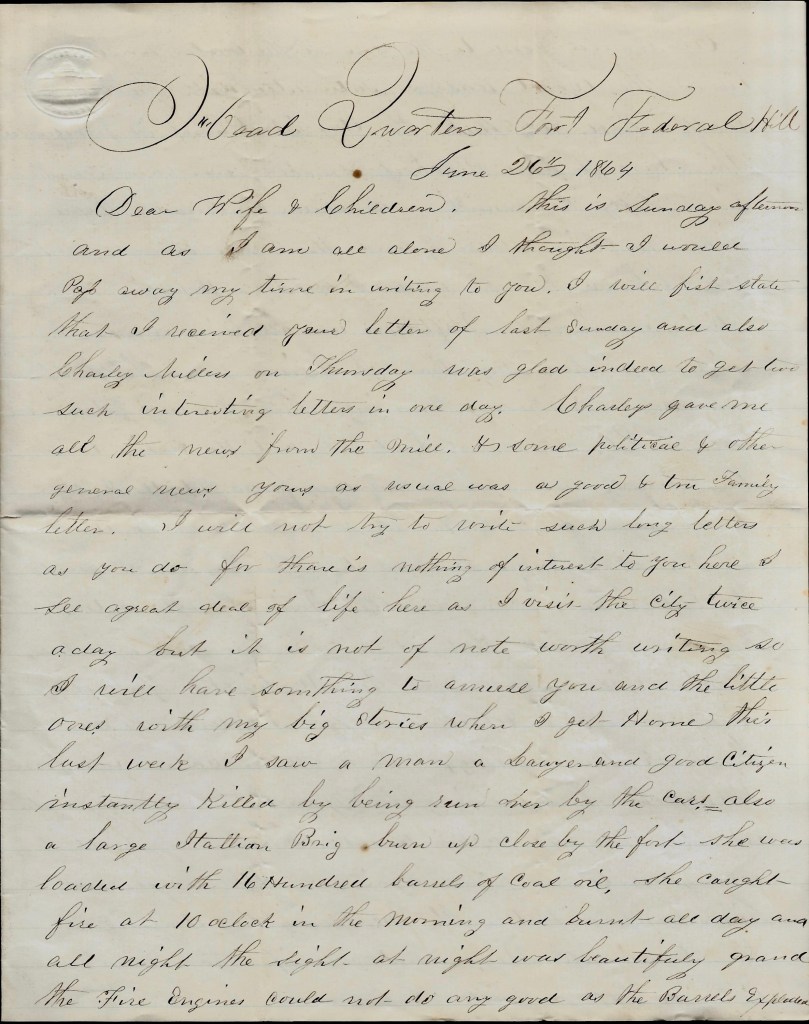 Head Quarters Fort Federal Hill
June 26th 1864
Dear Wife & Children. this is Sunday afternoon
and as I am all alone I thought I would
Pass away my time in writing to you. I will fist state
that I received your letter of last Sunday and also
Charley Millers on Thursday was glad indeed to get two
such interesting letters in one day. Charley gave me
all the news from the Mill. & some political & other
general news yours as usual was a good & true Family
letter. I will not try to write such long letters
as you do for thare is nothing of interest to you here I
see agreat deal of life here as I visit the city twice
aday but it is not of note worth writing so
I will have something to amuse you and the little
ones with my big Stories when I get Home this
last week I saw a man a Lawyer and good Citizen
instantly Killed by being run over by the Cars = also
a large Itallion Brig burn up close by the fort she was
loaded with 16 Hundred barrels of Coal oil, she caught
fire at 10 oclock in the Morning and burnt all day and
all night the sight at night was beautifuly grand
the Fire Engines could not do any good as the Barrels